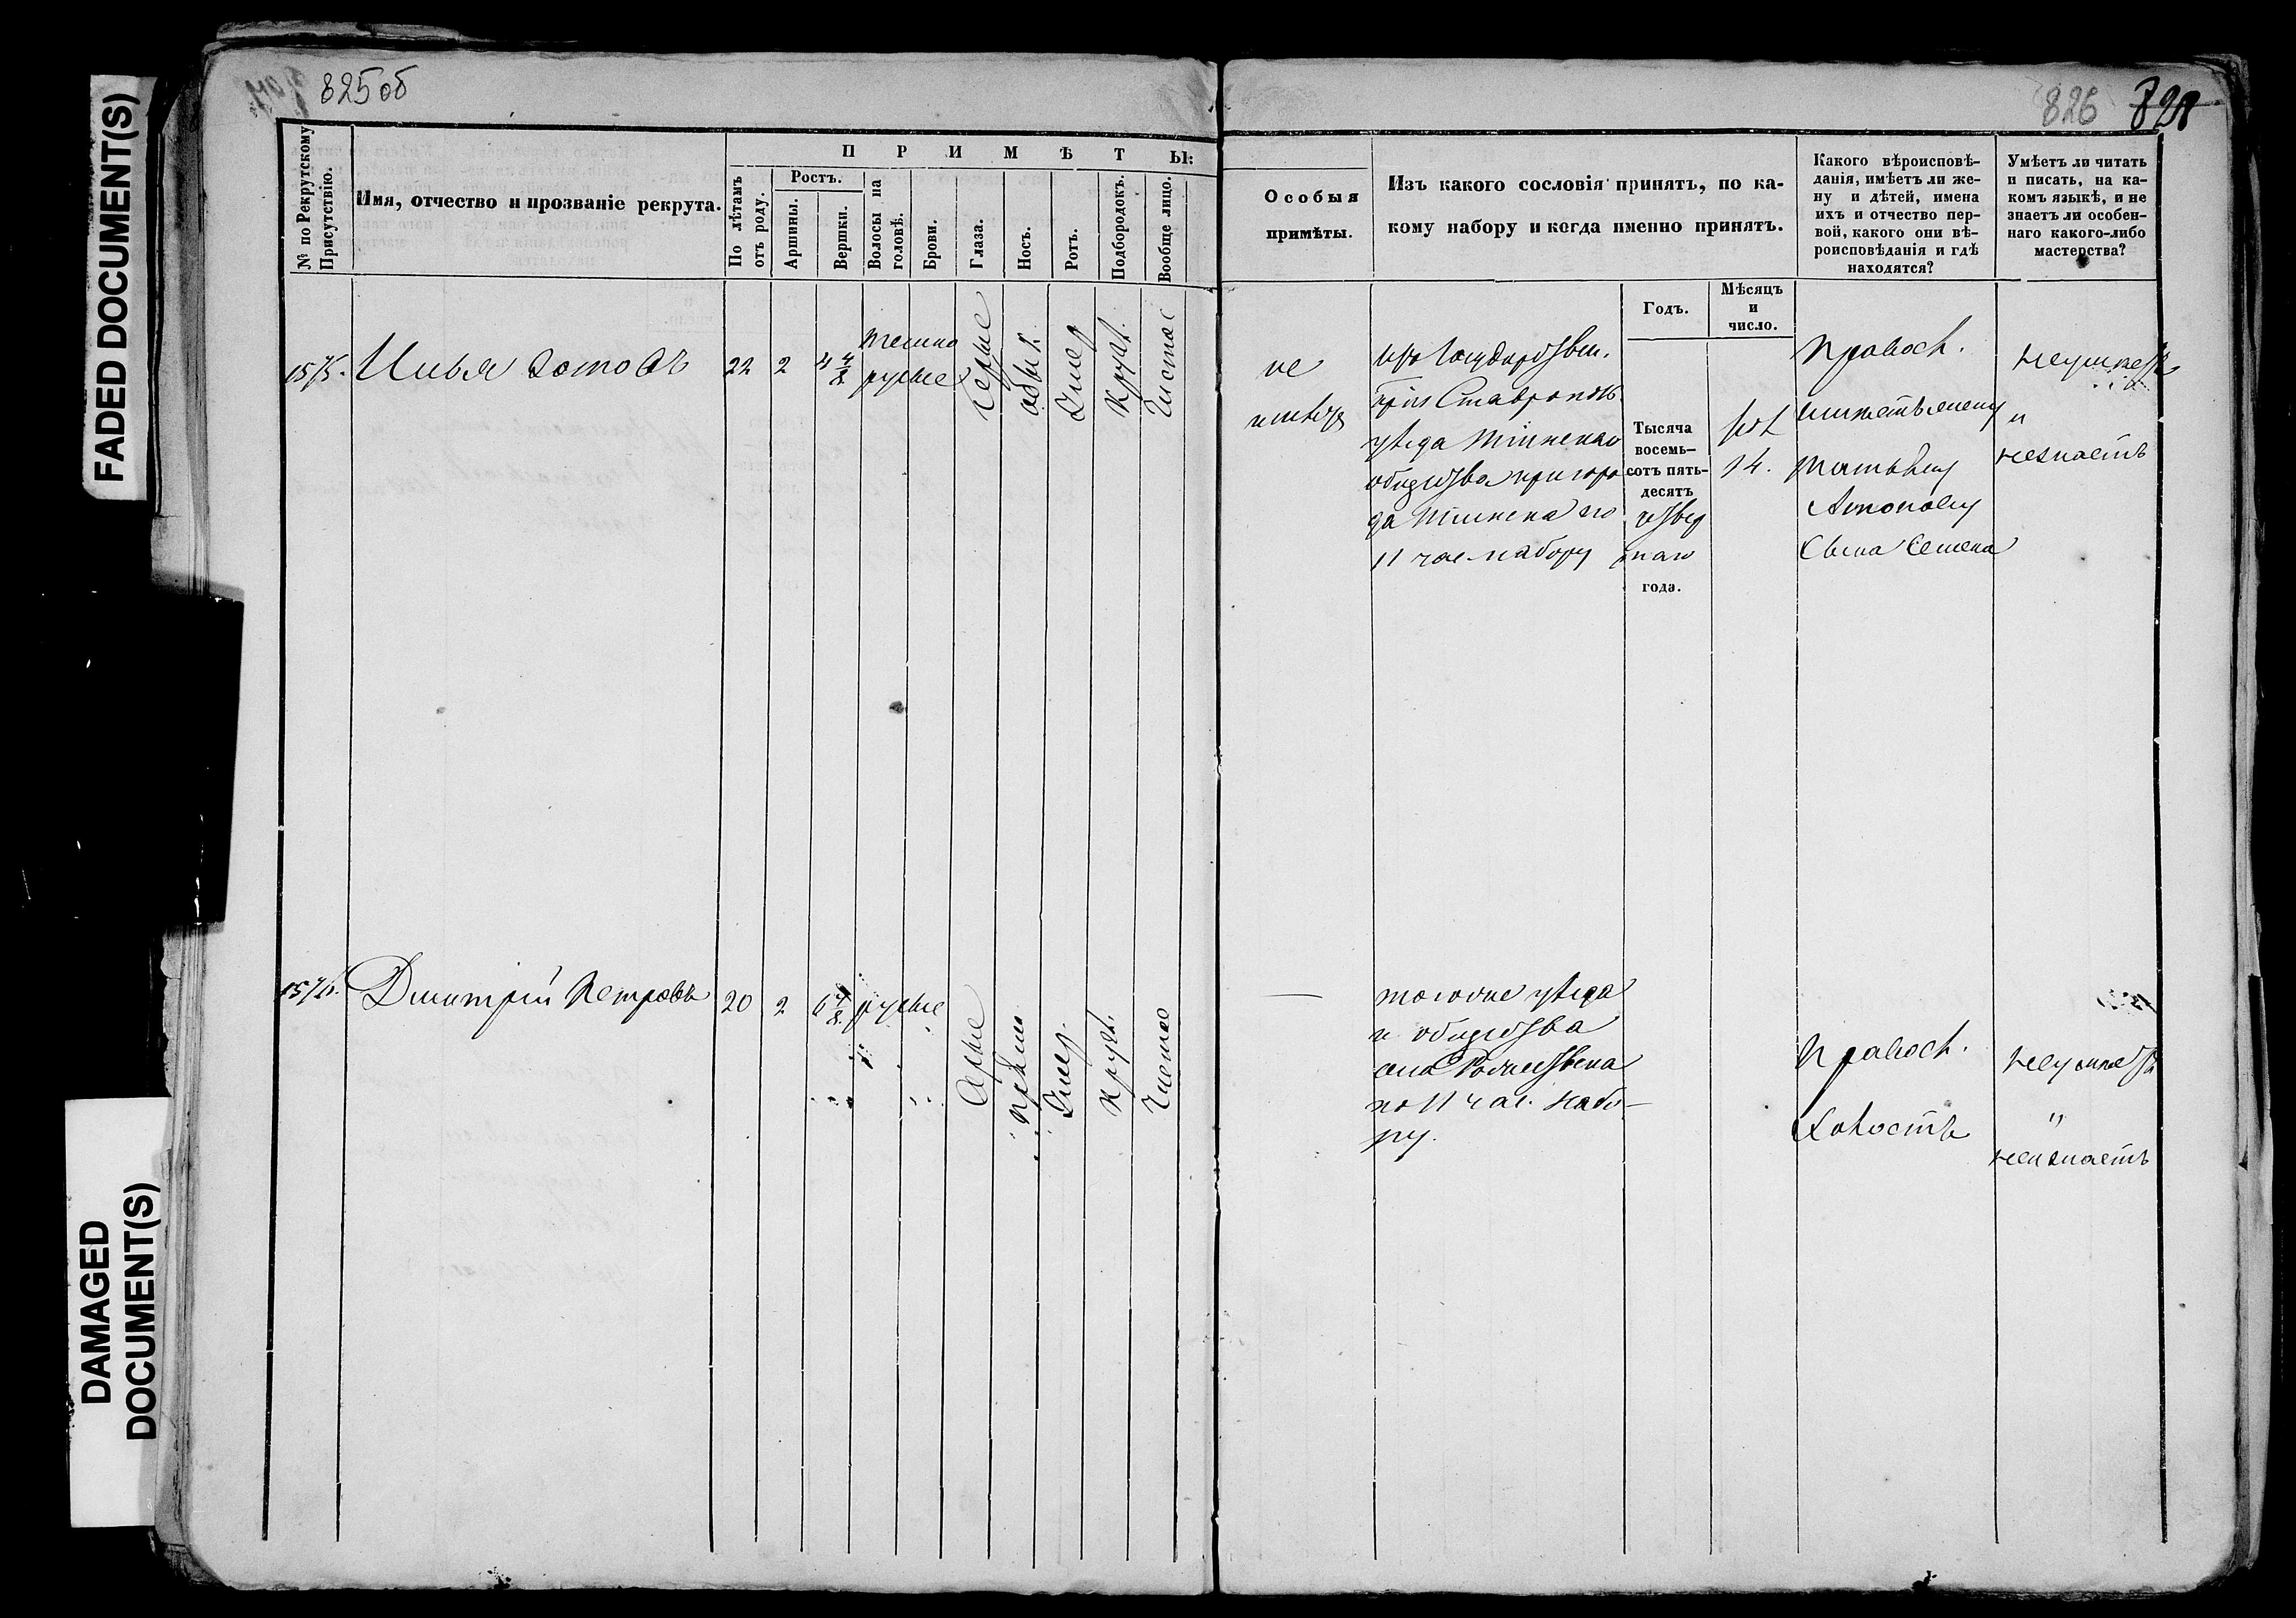 FADED DOCUMENT(S)
DAMAGED
DOCUMENT(S)
825 об
826
№ по Рекрутскому
Присутствію.
Имя, отчество и прозваніе рекрута.
ПРИМѢТЫ:
По лѣтамъ
отъ роду.
Ростъ.
Аршины.
Вершки.
Волосы на
головѣ.
Брови.
Глаза.
Носъ.
Ротъ.
Подбородокъ.
Вообще лицо.
Особыя
примѣты.
Изъ какого сословія принятъ, по ка-
кому набору и когда именно принятъ.
Годъ.
Мѣсяцъ
и
число.
Какого вѣроисповѣ-
данія, имѣетъ ли же-
ну и дѣтей, имена
ихъ и отчество пер-
вой, какого они вѣ-
роисповѣданія и гдѣ
находятся?
Умѣетъ ли читать
и писать, на ка-
комъ языкѣ, и не
знаетъ ли особен-
наго какого-либо
мастерства?
1575. Илья Зотовъ 22 2 4 4/8
темно
русые
Серые
обык.
Умер
Кругл.
Чистое
не
имѣетъ
изъ Государствен.
Крест Ставрополь
уѣзда
общества при горо
да по
11 час набору
Тысяча
восемь-
сотъ пять-
десятъ
четвер
таго
года.
14.
Правосл.
имѣетъ жену
Матвѣну
Сына Семена
неумѣетъ
и
незнаетъ
1576. Дмитрій Петровъ 20 2 6 4/8 русые
Серые
прям
Умер.
Кругл.
Чистое
—
того же уѣзда
и общества
села Рождествена
по 11 час. набо-
ру.
Правосл.
Холостъ
неумѣетъ
"
незнаетъ